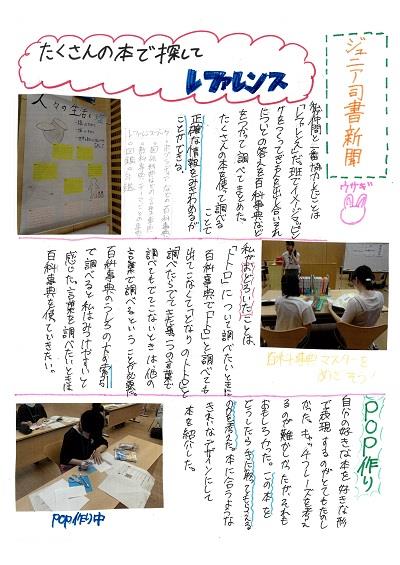 ジュニア司書新聞
ウサギ
たくさんの本で探して
レファレンス
私が仲間と一番協力したことは
「レファレンス」だ。班でイメージマップ
を
それに
ついての答えを百科事典など
をつかって調べてまとめた。
たくさんの本を使って調べる
ことで
正確な情報をみきわめるが
ことができる。
人々の生活
私がおどろいたことは、
「トトロ」について調べたいときに
百科事典で「トトロ」と調べても
出てこなくて「となりのトトロ」と
調べたらでてきた。一つの言葉で
調べてもでてこないときは他の
言葉で調べるということが必要だ。
百科事典のうしろの下の索から
で調べると私はみつけやすいと
感じた。言葉を調べたいときは
百科事典を使っていきたい。
百科事典マスターを
めざそう!
POP作り
自分の好きな本を好きな形
で表現するのがとてもたのし
かった。キャッチフレーズを考え
るのが難かしかったが、それも
おもしろかった。この本を
どうしたら手に取ってもらえる
のかを考えた。本に合うような
きれいなデザインにして
本を紹介した。
POP作り中